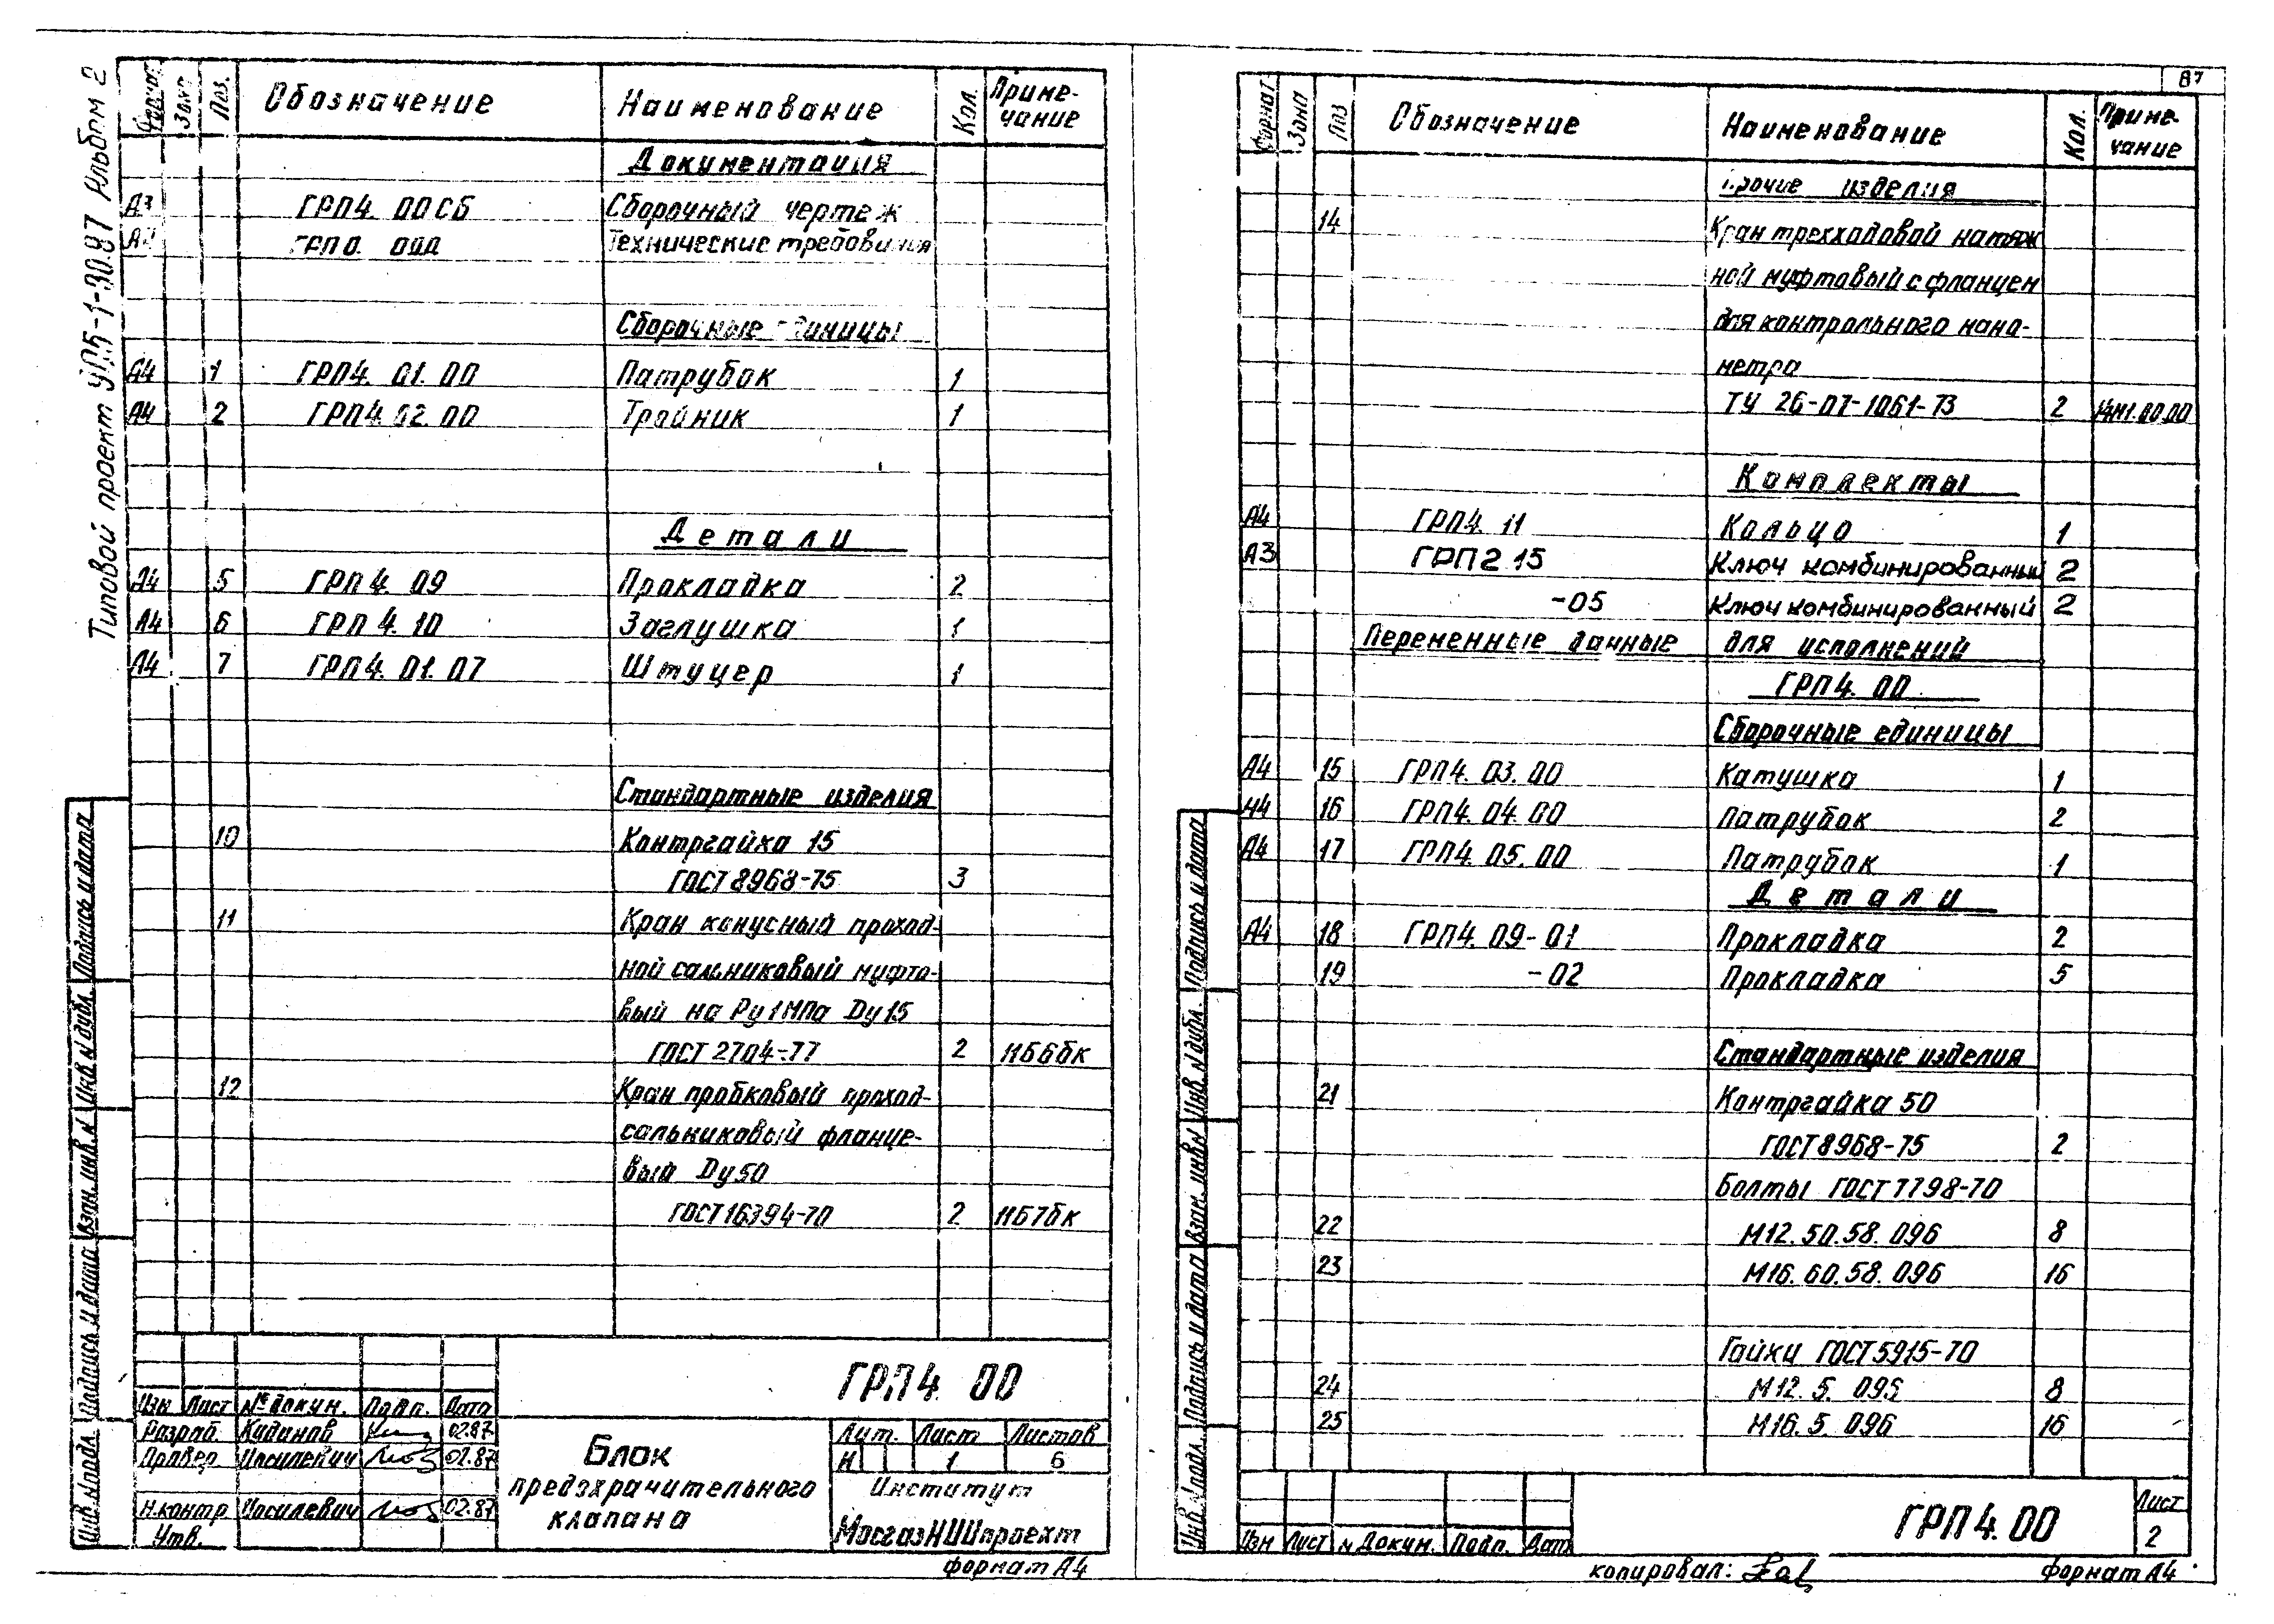 Типовой проект УПБ-1-30.87 Альбом 2
Формат Зона Поз. Обозначение Наименование Кол. Приме-
чание
Документация
А3 ГРП4. 00СБ Сборочный чертеж
ГРП0. 00Д Технические требования
Сборочные единицы
А4 1 ГРП4. 01. 00 Патрубок 1
А4 2 ГРП4. 02. 00 Тройник 1
Детали
А4 5 ГРП4. 09 Прокладка 2
А4 6 ГРП4. 10 Заглушка 1
А4 7 ГРП4. 01. 07 Штуцер 1
Стандартные изделия
10 Контргайка 15
ГОСТ 8968-75 3
11 Кран конусный проход-
ной сальниковый муфто-
вый на Ру1МПа Dу15
ГОСТ 2704-77 2 11Б6бк
12 Кран пробковый проход-
сальниковый фланце-
вый Dу50
ГОСТ 16394-70 2 11Б7бк
Инв.№подл. Подпись и дата Взам.инв.№ Инв.№дубл. Подпись и дата
Изм Лист №докум. Подп. Дата
Разраб. 02.87
Провер. Иосилевич 02.87
Н.контр Иосилевич 02.87
Утв.
ГРП4. 00
Блок
предохранительного
клапана
Лит. Лист Листов
И 1 6
Институт
МосгазНИИпроект
формат А4
87
Формат Зона Поз Обозначение Наименование Кол. Приме-
чание
Прочие изделия
14 Кран трехходовой натяж
ной муфтовый с фланцем
для контрольного мано-
метра
ТУ 26-07-1061-73 2 14М1.00.00
Комплекты
А4 ГРП4. 11 Кольцо 1
А3 ГРП2 15 Ключ комбинированный 2
-05 Ключ комбинированный 2
Переменные данные для исполнений
ГРП4. 00
Сборочные единицы
А4 15 ГРП4. 03. 00 Катушка 1
А4 16 ГРП4. 04. 00 Патрубок 2
А4 17 ГРП4. 05. 00 Патрубок 1
Детали
А4 18 ГРП4. 09-01 Прокладка 2
19 -02 Прокладка 5
Стандартные изделия
21 Контргайка 50
ГОСТ 8968-75 2
Болты ГОСТ 7798-70
22 М12. 50. 58. 096 8
23 М16. 60. 58. 096 16
Гайки ГОСТ 5915-70
24 М12. 5. 096 8
25 М16. 5. 096 16
Инв.№подл. Подпись и дата Взам.инв№ Инв.№дубл. Подпись и дата
Изм Лист № Докум. Подп. Дата
ГРП4.00
Лист
2
копировал:
формат А4